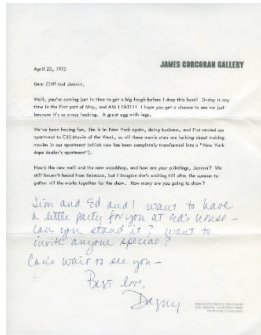 JAMES CORCORAN GALLERY
April 20, 1975
Dear Cliff and Joanne,
Well, you're coming just in time to get a big laugh before I drop this load! D-day is any
time in the first part of May, and AM I FAT!!! I hope you get a chance to see me just
because it's so crazy looking. A great egg with legs.
We've been having fun, Jim is in New York again, doing business, and I've rented our
apartment to CBS Movie of the Week, so all these movie stars are running about making
movies in our apartment (which now has been completely transformed into a "New York
dope dealer's apartment").
How's the new wall and the new workshop, and how are your paintings, Joanne? We
still haven't heard from but I imagine she's waiting till after the summer to
gather all the works together for the show. How many are you going to show?
Jim and Ed and I want to have
a little party for you at Ed's house –
can you stand it? want to
invite anyone special?
Can't wait to see you –
Best love,
Dagny